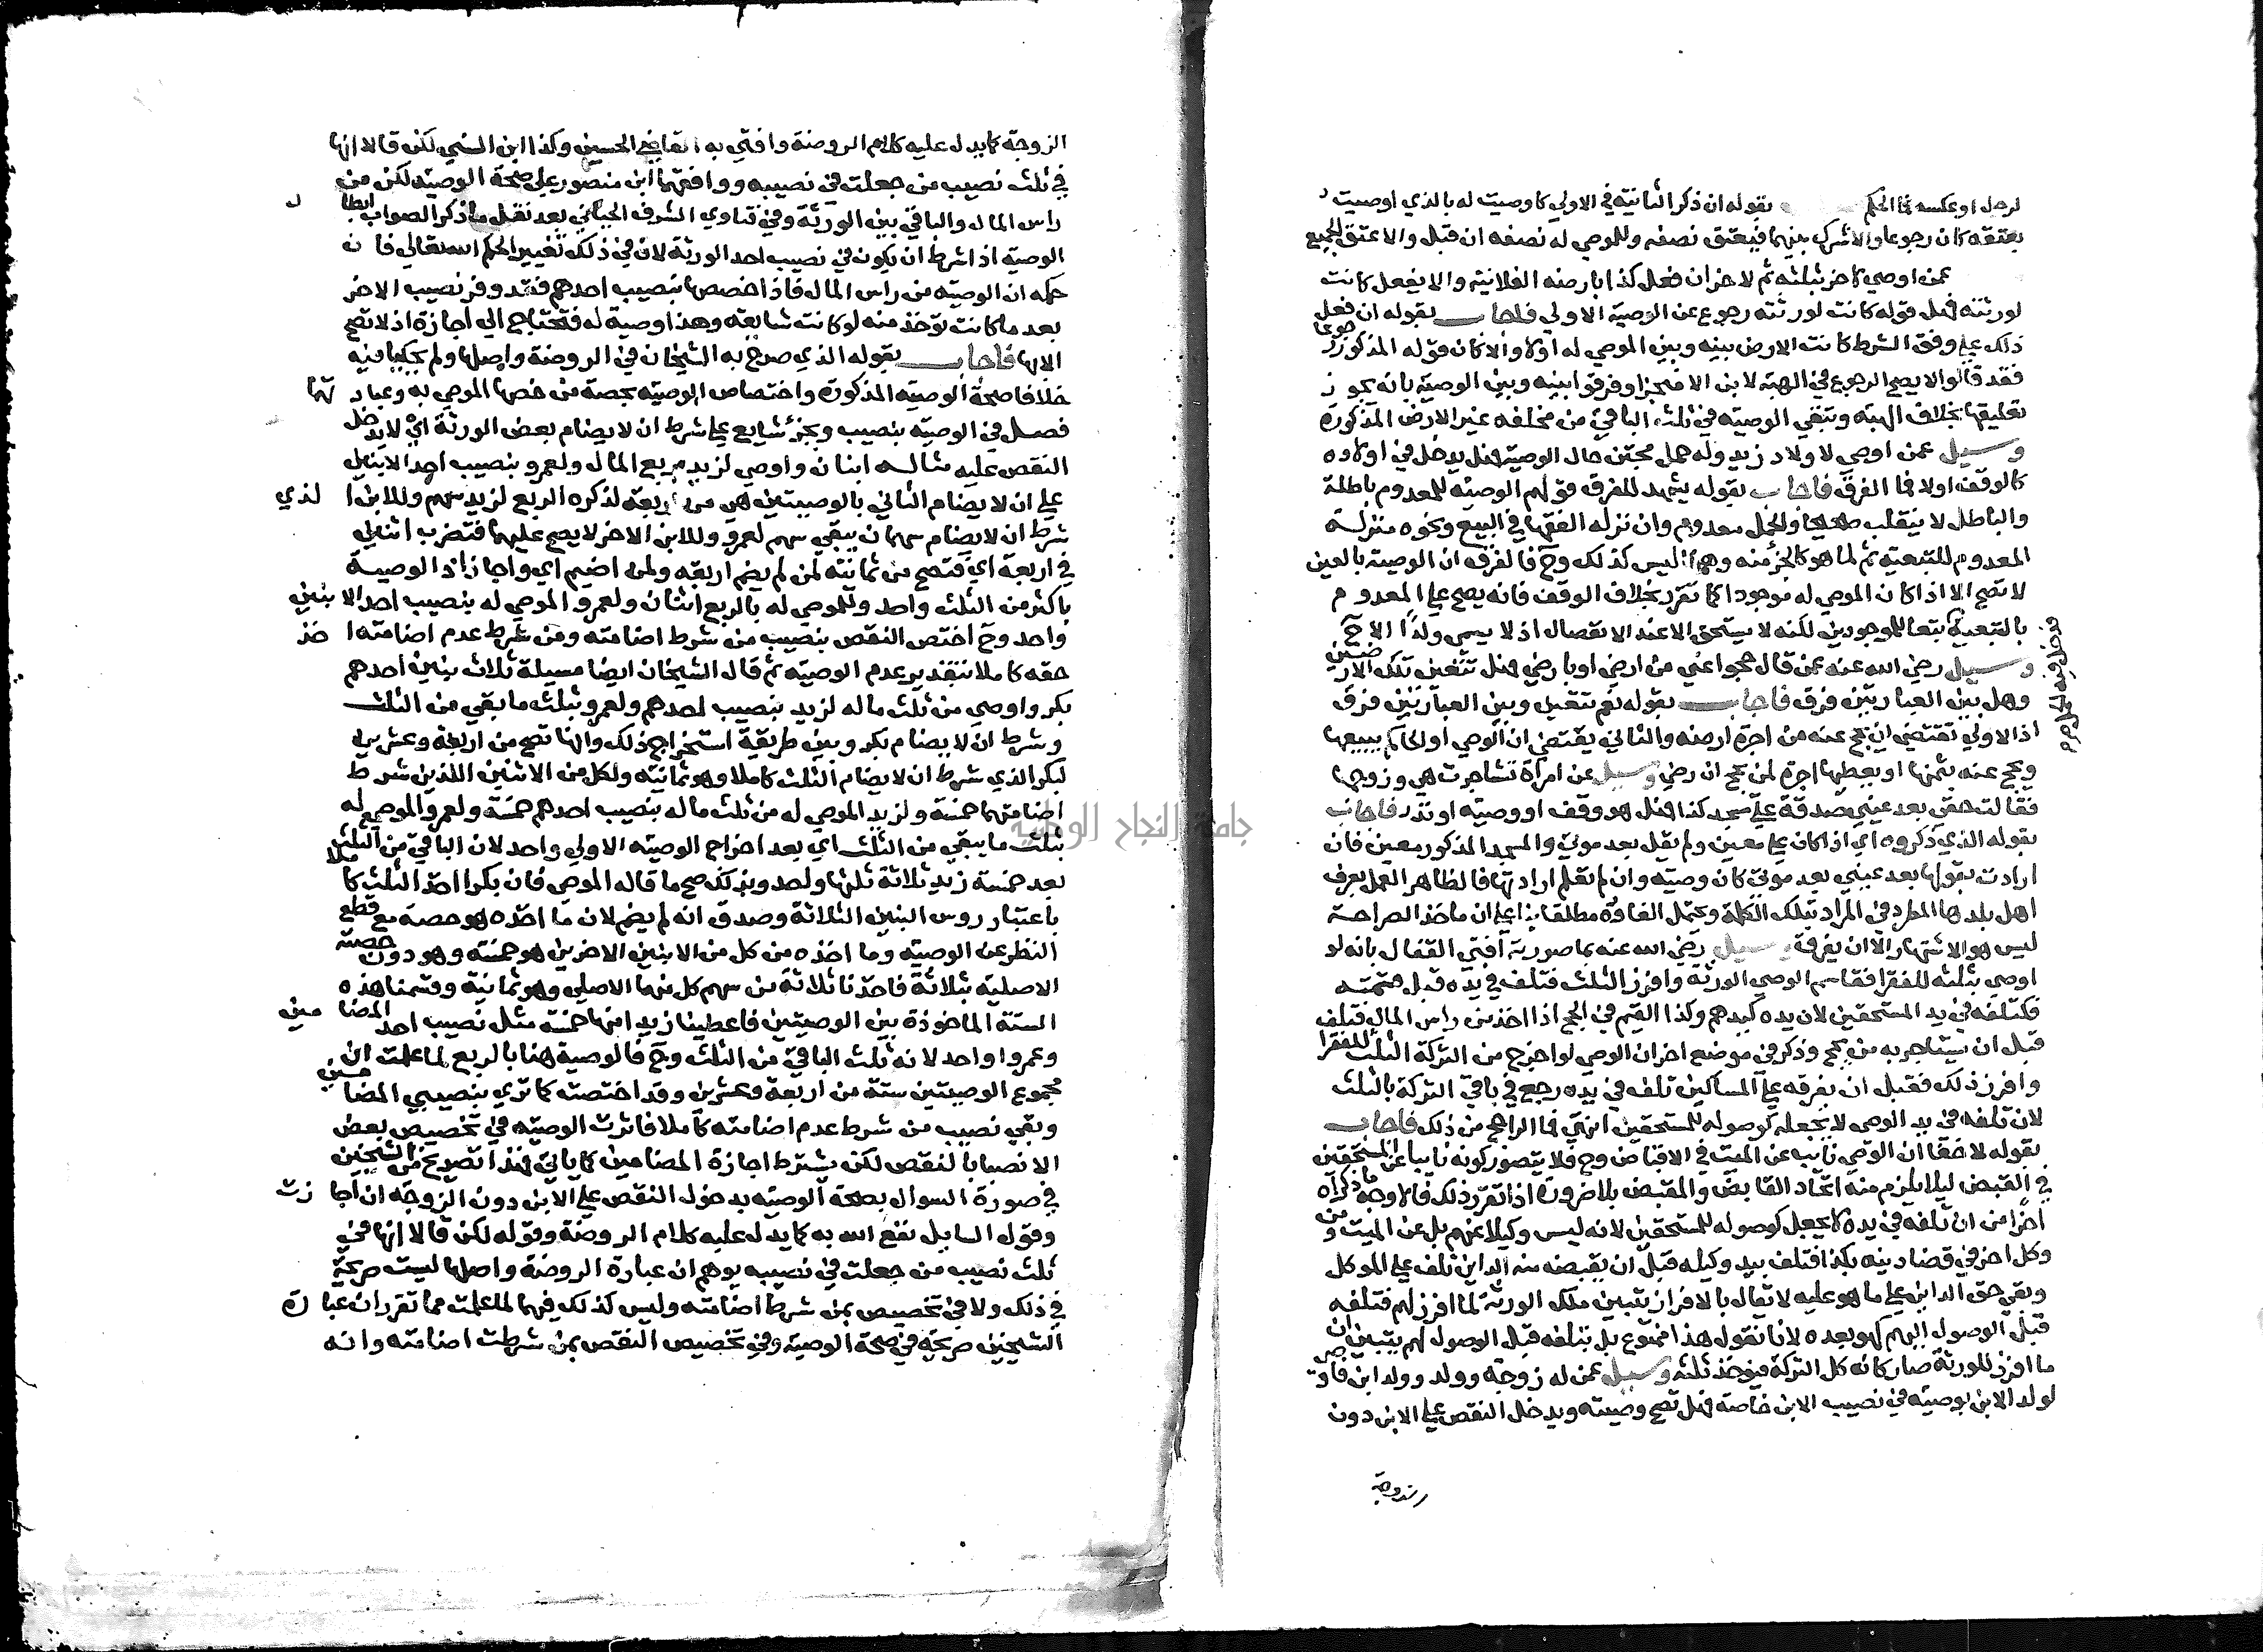 لرجل او عكسه فما الحكم بقوله ان ذكر الثانية في الاولي كاوصيت له بالذي اوصيت
بعتقه كان رجوعا والا شرك بينهما فيعتق نصفه وللموصي له نصفه ان قبل والا عتق الجميع
عمن اوصي لاخر بثلثه ثم لاخر ان فعل كذا بارضه الفلانية والا يفعل كانت
لورثته فهل قوله كانت لورثته رجوع عن الوصية الاولي فاجاب بقوله ان فعل
ذلك علي وفق الشرط كانت الارض بينه وبين الموصي له اولا والا كان قوله المذكور رجوعا
فقد قالوا لا يصح الرجوع في الهبة لابن الا منجزا وفرقوا بينه وبين الوصية بانه يجوز
تعليقها بخلاف الهبة وتبقي الوصية في ثلث الباقي من مخلفه غير الارض المذكورة
وسيل عمن اوصي لاولاد زيد وله حمل مجتن حال الوصية فهل يدخل في اولاده
كالوقف اولا فما الفرق فاجاب بقوله يشهد للفرق قولهم الوصية للمعدوم باطلة
والباطل لا ينقلب صحيحا والحمل معدوم وان نزله الفقها في البيع ونحوه منزلة
المعدوم للتبعية ثم لما هو كالجزء منه وهنا ليس كذلك وح فالفرق ان الوصية بالعين
لا تصح الا اذا كان الموصي له موجودا كما تقرر بخلاف الوقف فانه يصح علي المعدوم
بالتبعية تبعا للموجودين لكنه لا يستحق الا عند الانفصال اذ لا يسمي ولدا الا ح
وسيل رضي الله عنه عمن قال حجوا عني من ارضي او بارضي فهل تتعين تلك الارضين
وهل بين العبارتين فرق فاجاب بقوله نعم تتعين وبين العبارتين فرق
اذ الاولي تقتضي ان يحج عنه من اجرة ارضه والثاني يقتضي ان الوصي او الحاكم يبيعها
ويحج عنه بثمنها او يعطيها اجرة لمن يحج ان رضي وسيل عن امراة تشاجرت هي وزوجها
فقالت حقي بعد عيني صدقة علي مسجد كذا فهل هو وقف او وصية او نذر فاجاب
بقوله الذي ذكروه اي اذا كان علي معين ولم يقل بعد موتي والمسجد المذكور معين فان
ارادت بقولها بعد عيني بعد موتي كان وصية وان لم تعلم ارادتها فالظاهر العمل بعرف
اهل بلدها المطرد في المراد بتلك الكلمة ويحتمل الغاوه مطلقا بنا علي ان ماخذ الصراحة
ليس هو الاشتهار الا ان يفرقة وسيل رضي الله عنه بما صورته افتي القفال بانه لو
اوصي بثلثه للفقرا فقاسم الوصي الورثة وافرز الثلث فتلف في يده قبل قسمته
فكتلفه في يد المستحقين لان يده كيدهم وكذا القيم في الحج اذا اخذ من راس المال فتلف
قبل ان يستاجر به من يحج وذكر في موضع اخر ان الوصي لو اخرج من التركة الثلث للفقرا
وافرز ذلك فقبل ان يفرقه علي المساكين تلف في يده رجع في باقي التركة بالثلث
لان تلفه في يد الوصي لا يجعله كوصوله للمستحقين انتهي فما الراجح من ذلك فاجاب
بقوله لا خفا ان الوصي نايب عن الميت في الاقباض وح فلا يتصور كونه نايبا عن المستحقين
في القبض ليلا يلزم منه اتحاد القابض والمقبض بلا ضرورة اذا تقرر ذلك فالاوجه ما ذكراه
اخرا من ان تلفه في يده لا يجعل كوصوله للمستحقين لانه ليس وكيلا عنهم بل عن الميت ومن
وكل اخر في قضا دينه بكذا فتلف بيد وكيله قبل ان يقبضه منه الداين تلف علي الموكل
وبقي حق الداين علي ما هو عليه لا يقال بالافراز يتبين ملك الورثة لما افرز لهم فتلفه
قبل الوصول اليهم كهو بعده لانا نقول هذا ممنوع بل بتلفه قبل الوصول لهم يتبين ان
ما افرز للورثة صار كانه كل التركة فيوخذ ثلثه وسيل عمن له زوجة وولد وولد ابن فاوصي
لولد الابن بوصية في نصيب الابن خاصة فهل تصح وصيته ويدخل النقص علي الابن دون
الزوجة كما يدل عليه كلام الروضة وافتي به القاضي الحسين وكذا ابن السني لكن قالا انها
في ثلث نصيب من جعلت في نصيبه ووافقهما ابن منصور علي صحة الوصية لكن من
راس المال والباقي بين الورثة وفي فتاوي الشرف الجيائي بعد نقل ما ذكر الصواب ابطال
الوصية اذا شرط ان يكون في نصيب احد الورثة لان في ذلك تغيير الحكم الله تعالي فان
حكمه ان الوصية من راس المال فاذا خصصها بنصيب احدهم فقد وفر نصيب الاخر
بعد ما كانت توخذ منه لو كانت شايعة وهذا وصية له فتحتاج الي اجازة اذ لا تصح
الا بها فاجاب بقوله الذي صرح به الشيخان في الروضة واصلها ولم يحكيا فيه
خلافا صحة الوصية المذكورة واختصاص الوصية بحصة من خصها الموصي به وعبارتهما
فصل في الوصية بنصيب وبجزء شايع علي شرط ان لا يضام بعض الورثة اي لا يدخل
النقص عليه مثاله ابنان واوصي لزيد بربع المال ولعمرو بنصيب احد الابنين
علي ان لا يضام الثاني بالوصيتين هي من اربعة لذكره الربع لزيد سهم وللابن الذي
شرط ان لا يضام سهمان يبقي سهم لعمرو وللابن الاخر لا يصح عليهما فتضرب اثنين
في اربعة اي فتصح من ثمانية لمن لم يضم اربعة ولمن اضيم اي واجاز اذ الوصية
باكثر من الثلث واحد وللموصي له بالربع اثنان ولعمرو الموصي له بنصيب احد الابنين
واحد وح اختص النقص بنصيب من شرط اضامته ومن شرط عدم اضامته اخذ
حقه كاملا بتقدير عدم الوصية ثم قال الشيخان ايضا مسيلة ثلاث بنين احدهم
بكر واوصي من ثلث ماله لزيد بنصيب احدهم ولعمرو بثلث ما بقي من الثلث
وشرط ان لا يضام بكر وبين طريقة استخراج ذلك وانها تصح من اربعة وعشرين
لبكر الذي شرط ان لا يضام الثلث كاملا وهو ثمانية ولكل من الاثنين اللذين شرط
اضامتهما خمسة ولزيد الموصي له من ثلث ماله بنصيب احدهم خمسة ولعمرو الموصي له
بثلث ما يبقي من الثلث اي بعد اخراج الوصية الاولي واحد لان الباقي من الثلث
بعد خمسة زيد ثلاثة ثلثها واحد وبذلك صح ما قاله الموصي فان بكرا اخذ الثلث كاملا
باعتبار روس البنين الثلاثة وصدق انه لم يضم لان ما اخذه هو حصة مع قطع
النظر عن الوصية وما اخذه من كل من الابنين الاخرين هو خمسة وهو دون حصته
الاصلية بثلاثة فاخذنا ثلاثة من سهم كل منهما الاصلي وهو ثمانية وقسمنا هذه
الستة الماخوذة بين الوصيتين فاعطينا زيدا منها خمسة مثل نصيب احد المضامين
وعمروا واحد لانه ثلث الباقي من الثلث وح فالوصية هنا بالربع لما علمت ان
مجموع الوصيتين ستة من اربعة وعشرين وقد اختصت كما تري بنصيبي المضامين
وبقي نصيب من شرط عدم اضامته كاملا فاثرت الوصية في تخصيص بعض
الانصبا بالنقص لكن يشترط اجازة المضامين كما ياتي فهذا تصريح من الشيخين
في صورة السوال بصحة الوصية بدخول النقص علي الابن دون الزوجة ان اجازت
وقول السايل نفع الله به كما يدل عليه كلام الروضة وقوله لكن قالا انها في
ثلث نصيب من جعلت في نصيبه يوهم ان عبارة الروضة واصلها ليست صريحة
في ذلك ولا في تخصيص بمن شرط اضامته وليس كذلك فيهما لما علمت مما تقرر ان عبارة
الشيخين صريحة في صحة الوصية وفي تخصيص النقص بمن شرطت اضامته وانه
جامعة النجاح الوطنية